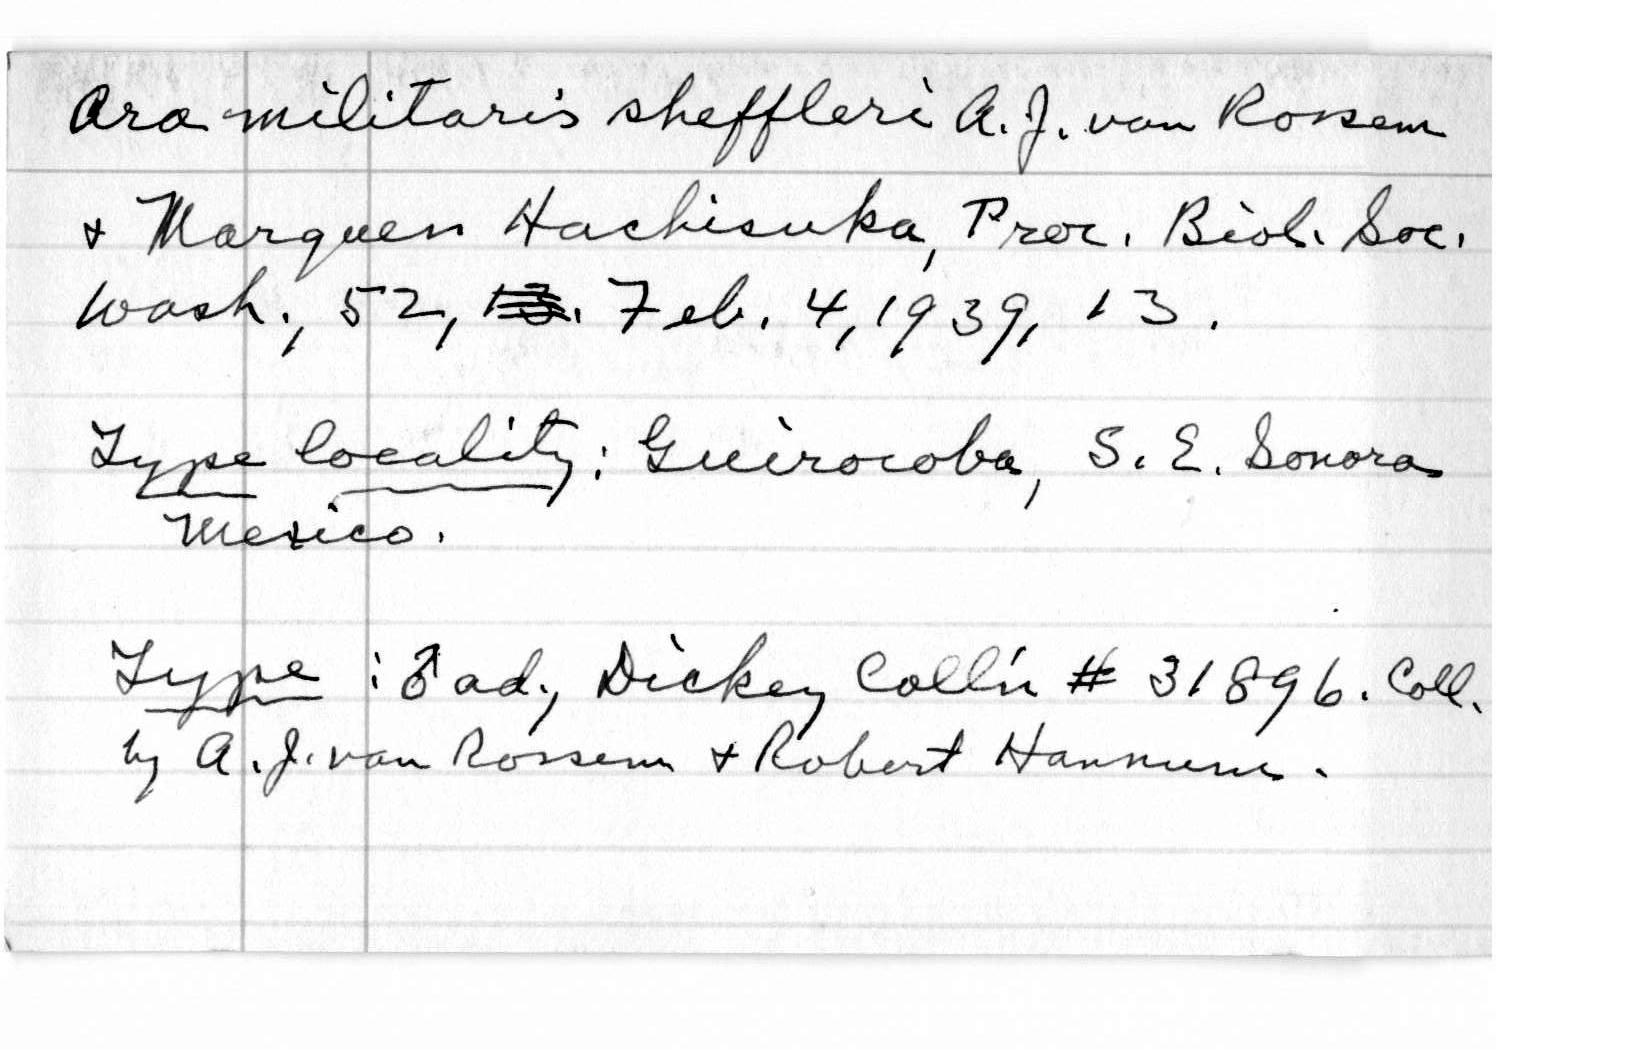 Ara militaris sheffleri A.J. van Rossem
+ Marquen Hachisuka, Proc. Biol. Soc.
Wash., 52, 13. Feb. 4, 1939, 13.
Type locality: Guirocoba, S. E. Sonora
Mexico.
Type : ♂ ad., Dickey Coll'n # 31896. Coll.
by A. J. van Rossem + Robert Hannum.